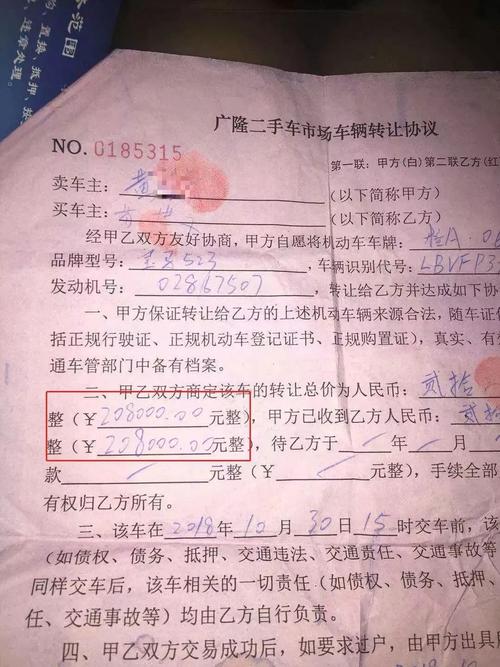 范围
、置换、抵押、按
、违章处理。
广隆二手车市场车辆转让协议
NO. 0185315
第一联:甲方(白)第二联乙方(红
卖车主:黄 (以下简称甲方)
买车主: (以下简称乙方)
经甲乙双方友好协商,甲方自愿将机动车车牌:桂A·06
品牌型号:宝马523,车辆识别代号:LBVFP3
发动机号:02867507,转让给乙方并达成如下协
一、甲方保证转让给乙方的上述机动车辆来源合法,随车证件
括正规行驶证、正规机动车登记证书、正规购置证),真实、有效
通车管部门中备有档案。
二、甲乙双方商定该车的转让总价为人民币:贰拾
整(¥208000.00元整),甲方已收到乙方人民币:贰拾
整(¥208000.00元整),待乙方于 年 月
款 元整(¥ 元整),手续全部
有权归乙方所有。
三、该车在2018年10月30日15时交车前,该
(如债权、债务、抵押、交通违法、交通责任、交通事故等
同样交车后,该车相关的一切责任(如债权、债务、抵押、
任、交通事故等)均由乙方自行负责。
四、甲乙双方交易成功后,如要求过户,由甲方出具